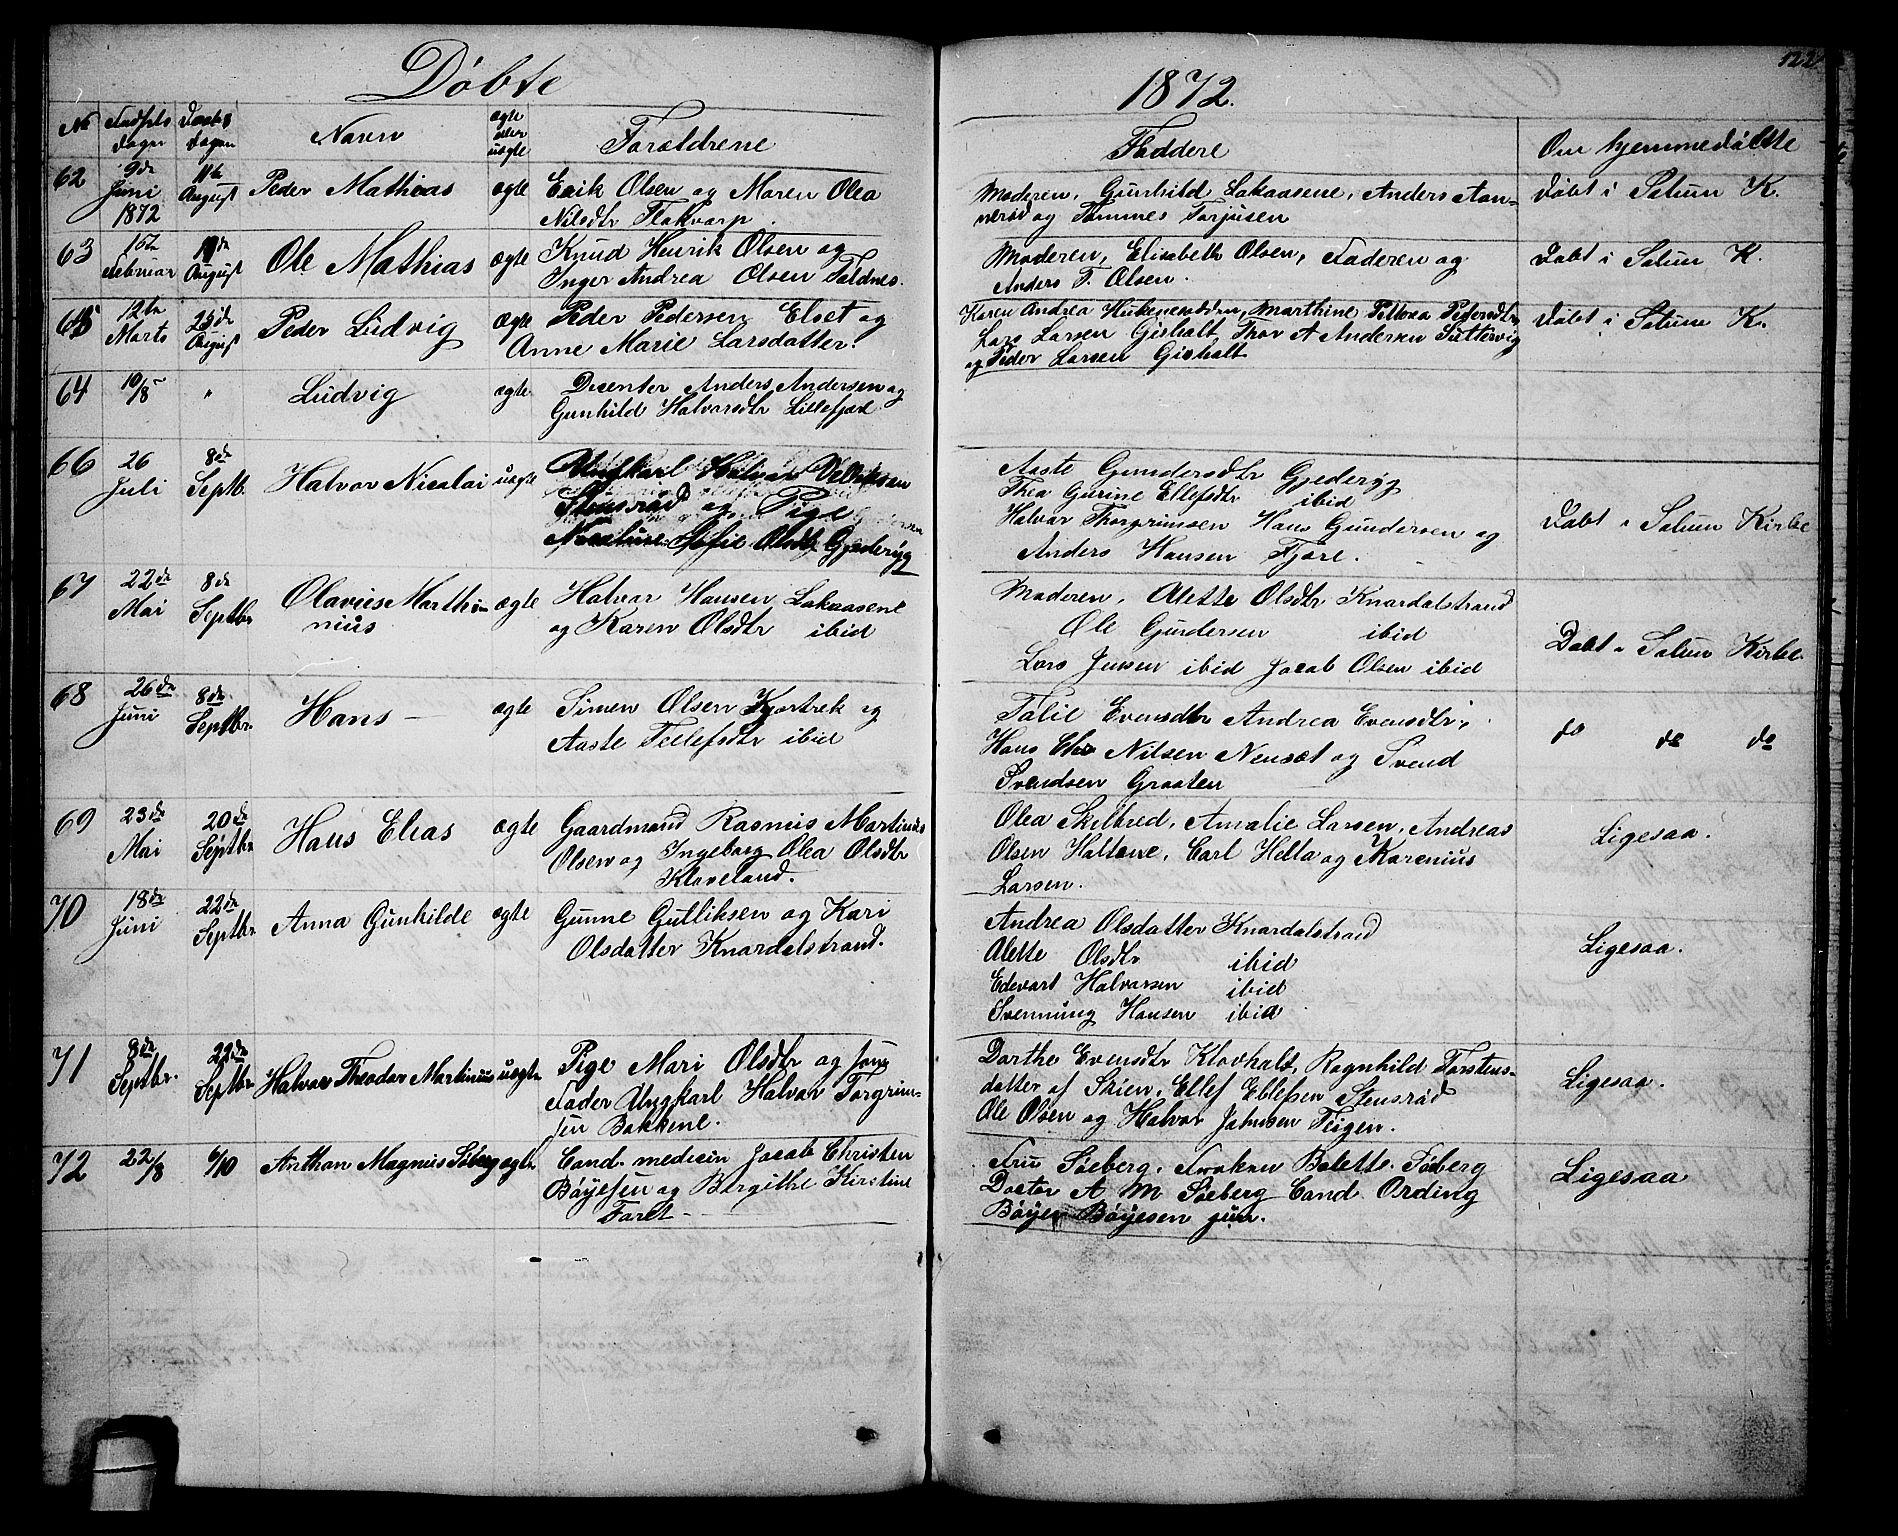 Døbte
No Fødsels Daabs Navn ægte Forældrene
dagen dagen eller
uægte
62 9de Juni 1872 11te August Peder Mathias ægte Erik Olsen og Maren Olea
Nilsdtr Flakvarp.
63 15de Februar 11de August Ole Mathias ægte Knud Henrik Olsen og
Inger Andrea Olsen Foldnes.
65 12te Marts 25de August Peder Ludvig ægte Peder Pedersen Elset og
Anne Marie Larsdatter.
64 10/8 " Ludvig ægte Anders Andersen og
Gunhild Halvorsdtr Lillefjære
66 26 Juli 8de Septb. Halvor Nicolai uægte Ungkarl Halvor
Stensrød og Pige
Sofie Olsdtr Gjederyg
67 22de Mai 8de Septbr Olavius Marthi- ægte Halvor Hansen Lakaasene
nius og Karen Olsdtr ibid
68 26de Juni 8de Septbr. Hans — ægte Simen Olsen Kjortrek og
Aaste Tellefsdtr ibid
69 23de Mai 20de Septbr Hans Elias ægte Gaardmand Rasmus Martinius
Olsen og Ingeborg Olea Olsdtr
Kloveland.
70 18de Juni 22de Septbr Anna Gunhilde ægte Gunne Gutliksen og Kari
Olsdatter Knardalstrand.
71 8de Septbr. 22de Septbr Halvor Theodor Martinius uægte Pige Mari Olsdtr og som
Fader Ungkarl Halvor Torgrim-
sen Bakkene.
72 22/8 6/10 Anthon Magnus Søberg ægte Cand. medicin Jacob Christen
Bøyesen og Birgithe Kirstine
Foret —
1872.
122
Faddere Om hjemmedøbte
Moderen, Gunhild Lakaasene, Anders Aan-
nerød og Tommes Torjusen
Døbt i Solum K.
Moderen, Elisabeth Olsen, Faderen og
Anders T. Olsen.
Døbt i Solum K.
Karen Andrea Marthine Petrea Pedersdtr,
Lars Larsen Gisholt, Thor A Andersen
og Peder Larsen Gisholt
Døbt i Solum K.
Aaste Gundersdtr Gjederyg
Thea Gurine Ellefsdtr ibid
Halvor Thorgrimsen Hans Gundersen og
Anders Hansen Fjære.
Døbt i Solum Kirke
Moderen, Alette Olsdtr Knardalstrand
Ole Gundersen ibid
Lars Jensen ibid Jacob Olsen ibid
Døbt i Solum Kirke.
Talie Evensdtr Andrea Evensdtr,
Hans Chr Nilsen Nensæt og Svend
Svendsen Graaten
do do do
Olea Skilbred, Amalie Larsen, Andreas
Olsen Haltane, Carl Hella og Karenius
Larsen.
Ligesaa.
Andrea Olsdatter Knardalstrand
Alette Olsdtr ibid
Edevart Halvorsen ibid
Svennung Hansen ibid
Ligesaa.
Dorthe Evensdtr Klovholt, Ragnhild Torstens-
datter af Skien, Ellef Ellefsen Stensrød
Ole Olsen og Halvor Johnsen Teigen.
Ligesaa.
Fru Søeberg, Frøken Bolette Søberg
Doctor A M Søeberg Cand. Ording
Bøyer Bøyesen jun.
Ligesaa